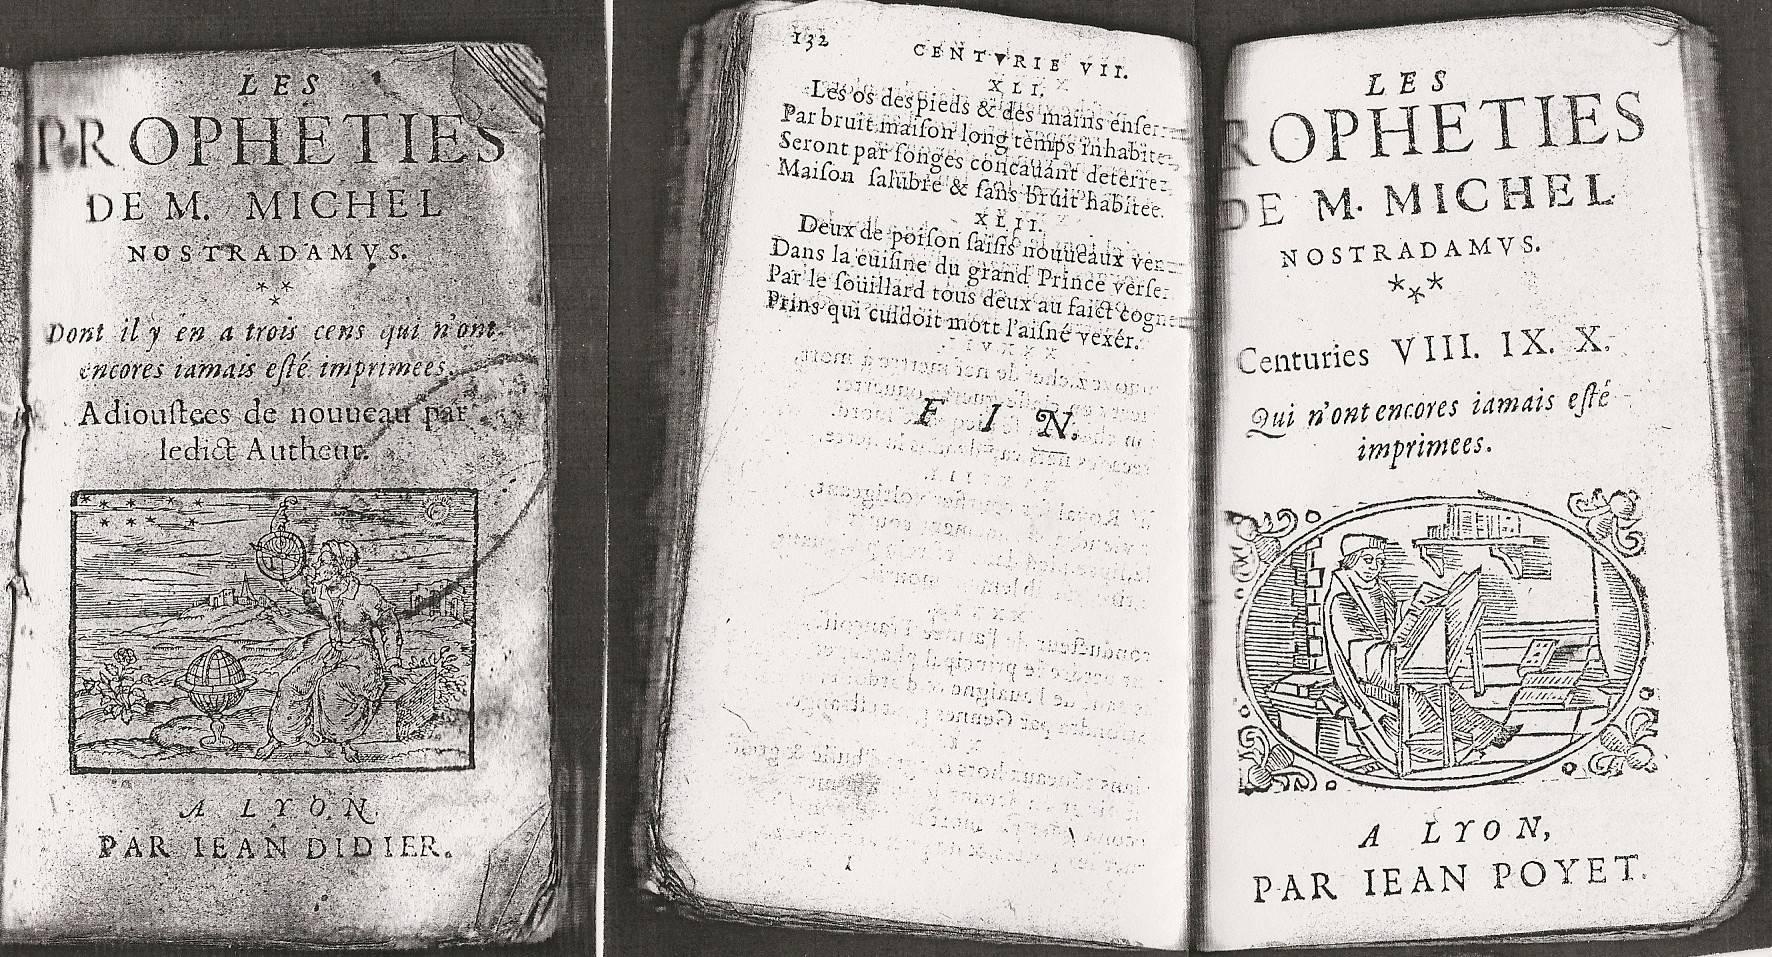 LES
PROPHETIES
DE M. MICHEL
NOSTRADAMVS.
Dont il y en a trois cens qui n'ont
encores iamais eſté imprimees.
Adiouſtees de nouueau par
ledict Autheur.
A LYON,
PAR IEAN DIDIER.
132
CENTVRIE VII.
XLI.
Les os des pieds & des mains enſer
Par bruit maiſon long temps inhabite
Seront par ſonges concauant deterrez
Maiſon ſalubre & ſans bruit habitee.
XLII.
Deux de poiſon ſaiſis nouueaux ven
Dans la cuiſine du grand Prince verſer
Par le ſoüillard tous deux au faict cogn
Prins qui cuidoit mott l'aiſné vexér.
FIN.
LES
ROPHETIES
DE M. MICHEL
NOSTRADAMVS.
Centuries VIII. IX. X.
Qui n'ont encores iamais eſté
imprimees.
A LYON,
PAR IEAN POYET.